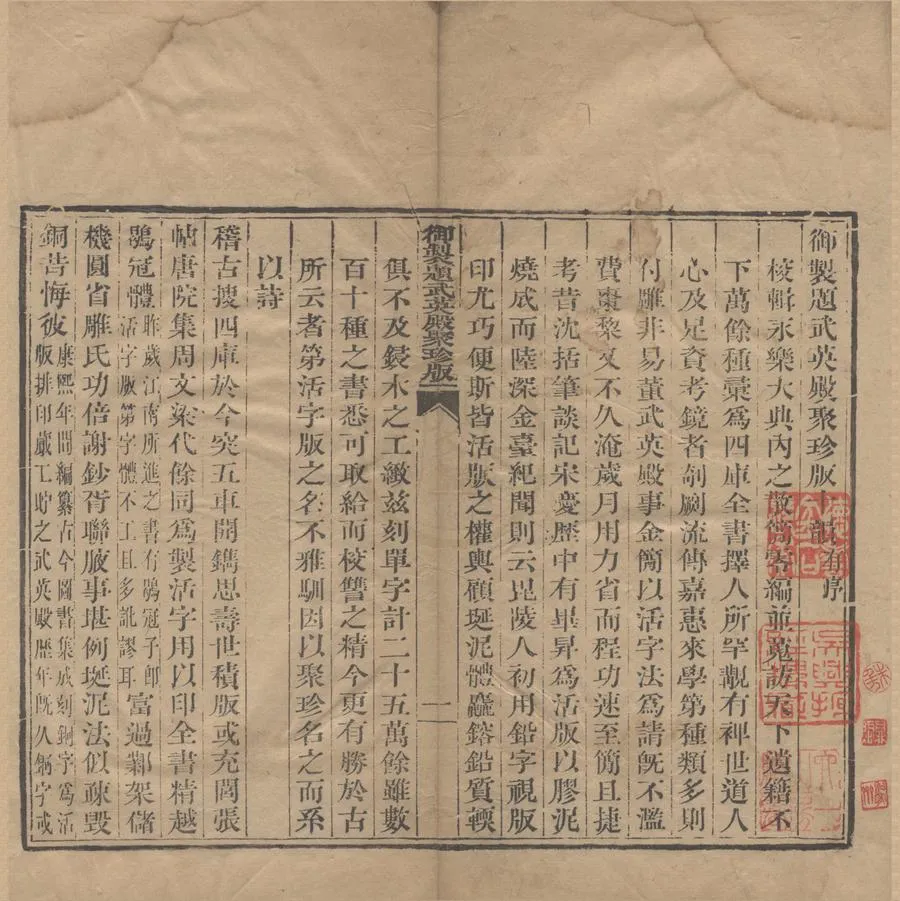 御製題武英殿聚珍版十韻有序
校輯永樂大典內之散簡零編並蒐訪天下遺籍不
下萬餘種彙爲四庫全書擇人所罕覯有裨世道人
心及足資考鏡者剞劂流傳嘉惠來學第種類多則
付雕非易董武英殿事金簡以活字法爲請旣不濫
費棗棃又不久淹歲月用力省而程功速至簡且捷
考昔沈括筆談記宋慶歷中有畢昇爲活版以膠泥
燒成而陸深金臺紀聞則云毘陵人初用鉛字視版
印尤巧便斯皆活版之權輿顧埏泥體麤鎔鉛質輭
御製題武英殿聚珍版
一
俱不及鋟木之工緻茲刻單字計二十五萬餘雖數
百十種之書悉可取給而校讐之精今更有勝於古
所云者第活字版之名不雅馴因以聚珍名之而系
以詩
稽古搜四庫於今突五車開鐫思壽世積版或充閭張
帖唐院集周文梁代餘同爲製活字用以印全書精越
鶡冠體
昨歲江南所進之書有鶡冠子卽
活字版第字體不工且多訛謬耳
富過鄴架儲
機圓省雕氏功倍謝鈔胥聯腋事堪例埏泥法似疎毀
銅昔悔彼
康熙年間編纂古今圖書集成刻銅字爲活
版排印蕆工貯之武英殿歷年旣久銅字或